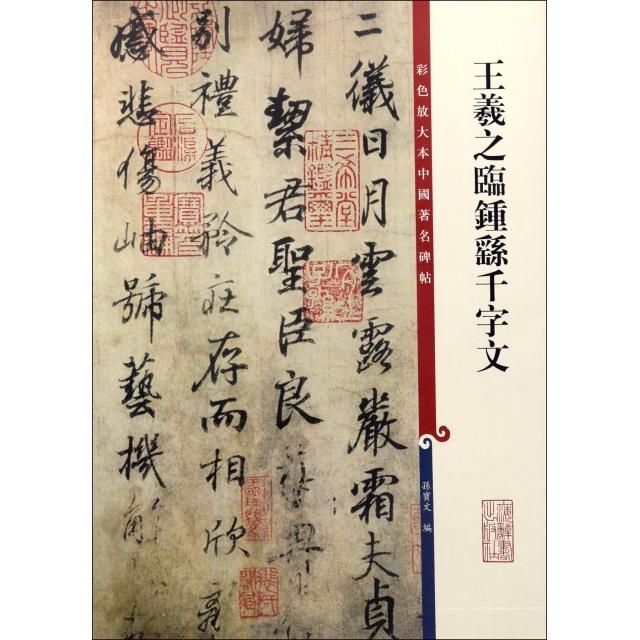 王羲之臨鍾繇千字文
彩色放大本中國著名碑帖
孫寶文 編
二儀日月雲露嚴霜夫貞
婦絜君聖臣良
別禮義矜莊存而相欣
慼悲傷岫號藝機
三希堂精鑑璽